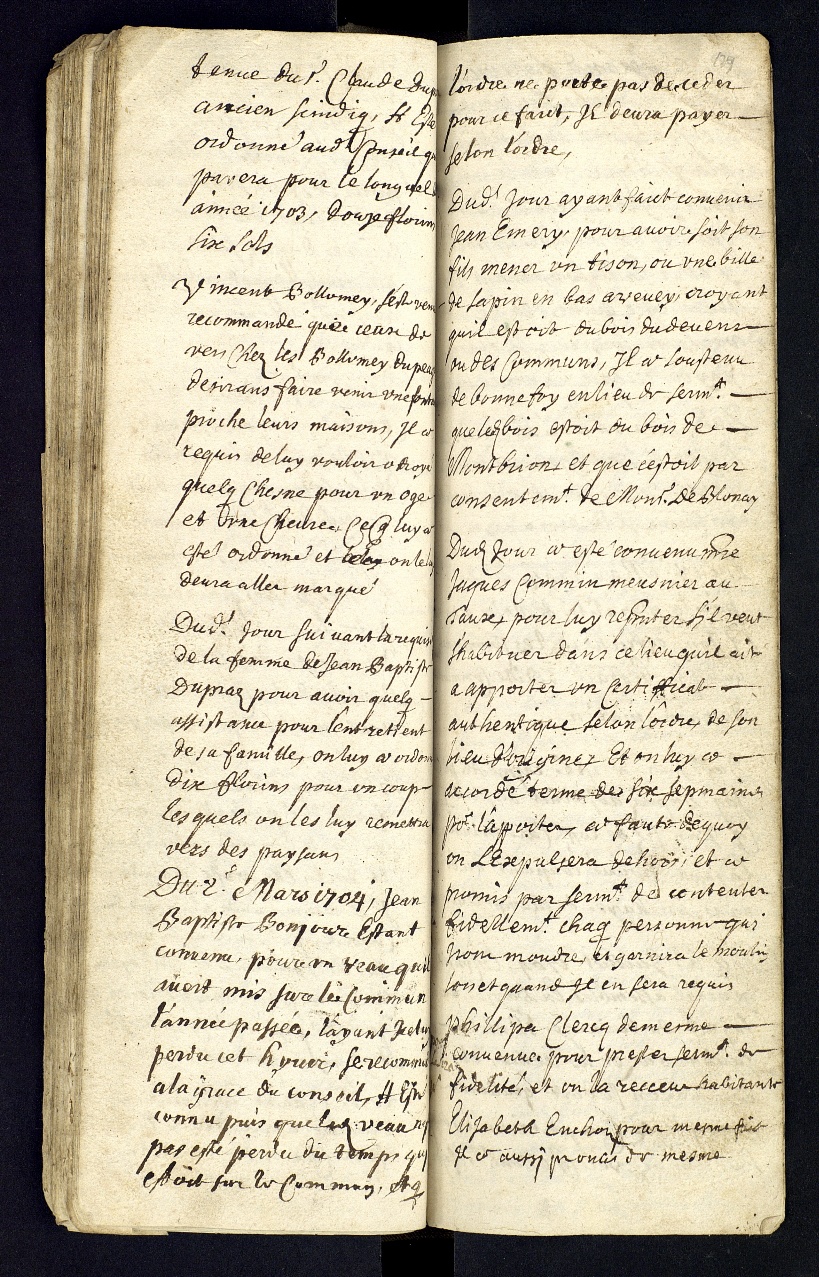 tenue du Sr. Claude
ancien scindiq, Il Est
ordonné aud. Conseil
payera pour le
année 1703, douze florins
six sols
Vincent Bollomey, s'est
recommandé
vers Chez les Bollomey
desirans faire venir une
proche leurs maisons, Il a
requis de luy vouloir
quelq Chesne pour un
et Cecq luy a
esté ordonné et on le
devra aller marqué
Dud. Jour suivant la
de la femme de Jean Baptiste
Dupraz pour avoir quelq
assistance pour l'entretient
de sa famille, on luy a
dix florins pour un coup
lesquels on les luy remettra
vers des paysans
Du 2e Mars 1704, Jean
Baptiste Bonjour Estant
convenu, pour un veau quil
avoit mis sur le Commun
l'année passée, layant
perdu cet hyver, se
a la grace du conseil, Il Est
connu puis que veau
pas esté perdu du temps
estoit sur le Commun, et
174
l'ordre ne porte pas de ceder
pour ce fait, Il devra payer
selon l'ordre,
Dud. Jour ayant fait convenir
Jean Emery, pour avoir soit son
fils mener un tison, ou une bille
de sapin en bas a vevey, croyant
quil estoit du bois du devens
ou des Communs, Il a soustenu
de bonne foy en lieu de sermt.
que led bois estoit du bois de
et que c'estoit par
consentemt. de Monsr. de Blonay
Dud Jour a esté convenu mre
Jaques Commin meusnier au
pour luy s'il veut
s'habituer dans ce lieu quil ait
a apporter un Certificat
authentique selon l'ordre, de son
lieu d'origine, Et on luy a
accordé terme de six sepmaines
pr. l'apporter, a faute dequoy
on L'Expulsera dehors, et a
promis par sermt. de contenter
fidellemt. chaq personne qui
moudre, et garnira le moulin
et quand Il en sera requis
Phillipa Clercq de mesme
convenue pour prester sermt. de
fidelité, et on la receue habitante
Elizabeth pour mesme fait
a aussi promis de mesme